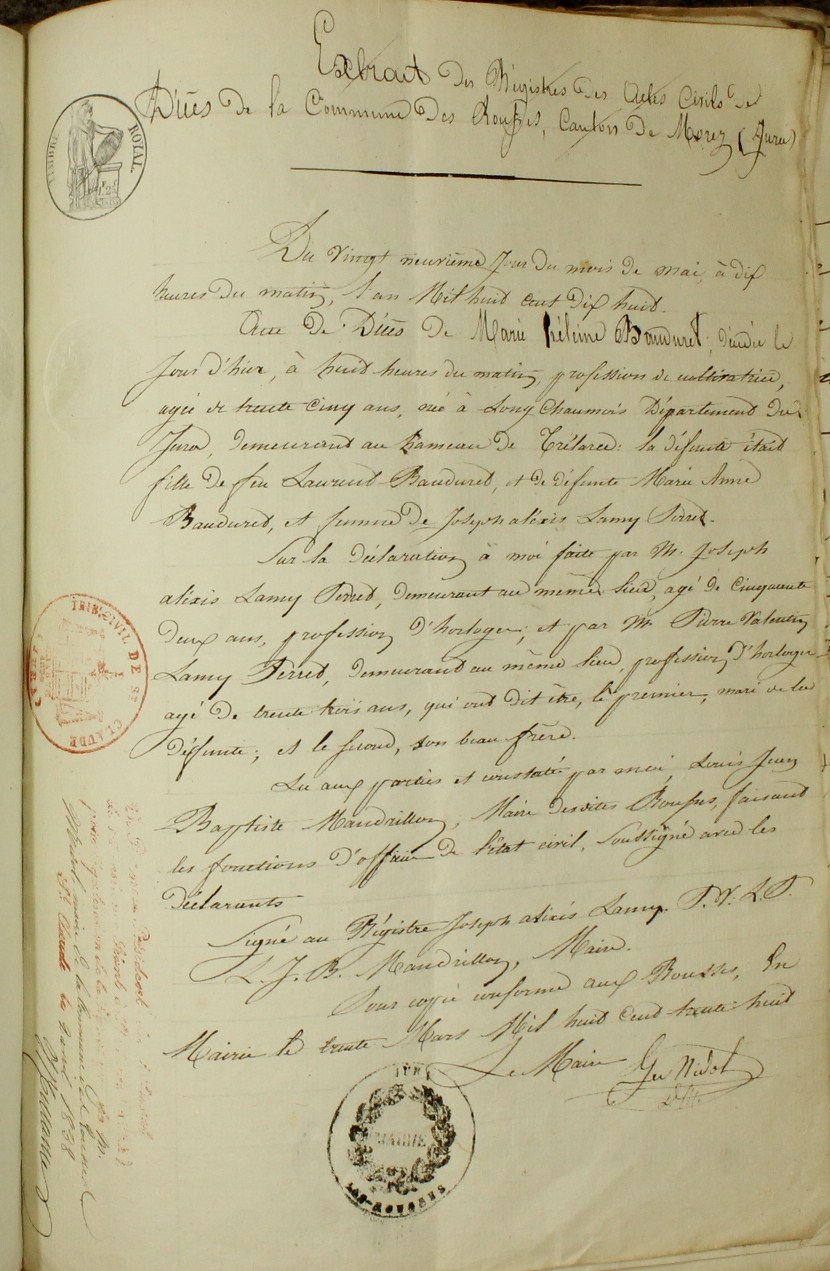 Extrait des Régistres des actes Civils de
Décès de la Commune des Rousses, Canton de Morez (Jura)
TIMBRE ROYAL
Du vingt neuvième jour du mois de mai, à dix
heures du matin, l'an Mil huit cent dix huit.
Acte de Décès de Marie hélène Bauduret, décédée le
jour d'hier, à huit heures du matin, profession de cultivatrice,
agée de trente cinq ans, née à Long Chaumois Département du
Jura, demeurant au hameau de Trélarce: la défunte était
fille de feu Laurent Bauduret, et de défunte Marie Anne
Bauduret, et femme de Joseph aléxis Lamy Perret.
Sur la déclaration à moi faite par M. Joseph
aléxis Lamy Perret, demeurant au même lieu, agé de cinquante
deux ans, profession d'horloger; et par M. Pierre Valentin
Lamy Perret, demeurant au même lieu, profession d'horloger
agé de trente trois ans, qui ont dit être, le premier, mari de la
défunte; et le second, son beau frère.
Lu aux parties et constaté par moi, Louis Jean
Baptiste Mandrillon, Maire desdites Rousses, faisant
les fonctions d'officier de l'état civil, soussigné avec les
déclarants
Signé au Régistre Joseph alexis Lamy. P. V. L. P.
L. J. B. Mandrillon, Maire.
Pour copie conforme aux Rousses, En
Mairie le trente Mars Mil huit Cent trente huit
Le Maire
TRIB. CIVIL DE ST CLAUDE
maire de la commune des Rousses
St Claude le 2 avril 1838
MAIRIE
LES ROUSSES